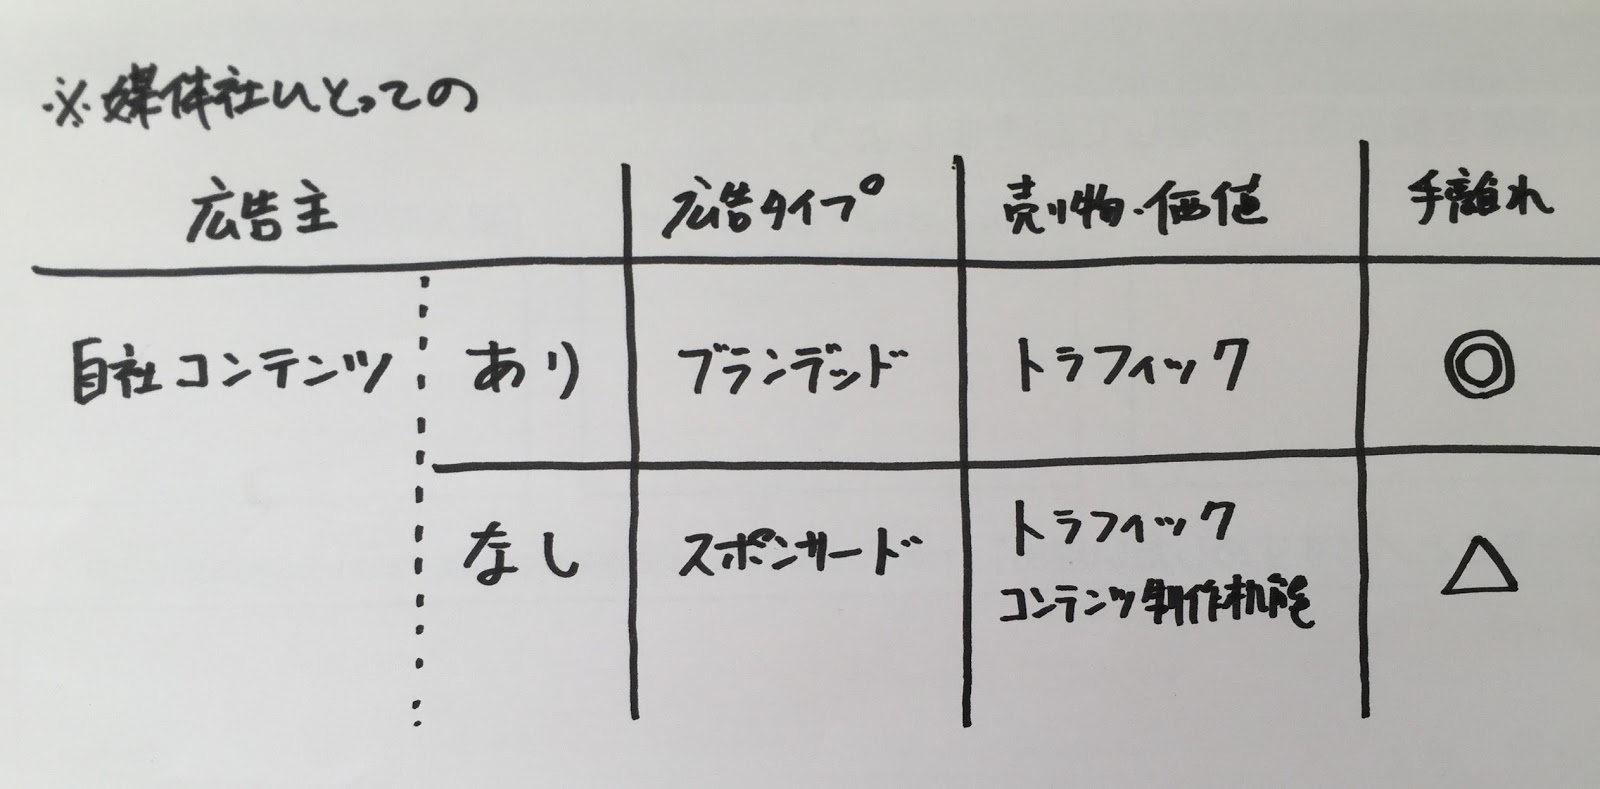 ※媒体社にとっての
広告主 広告タイプ 売り物・価値 手離れ
自社コンテンツ あり ブランデッド トラフィック ◎
なし スポンサード トラフィック △
コンテンツ制作机能